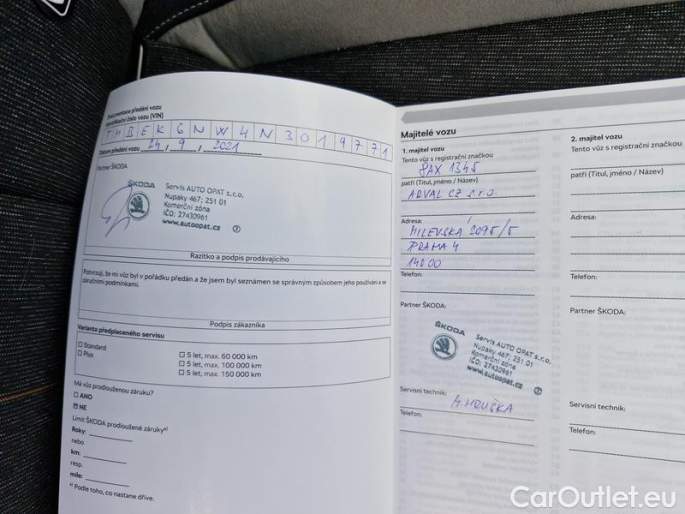 Dokumentace předání vozu
Identifikační číslo vozu (VIN)
TMBEK6NW4N3019771
Datum předání vozu 24. 9. 2021
Partner ŠKODA
ŠKODA
Servis AUTO OPAT s.r.o.
Nupaky 467; 251 01
Komerční zóna
IČ: 27430961
www.autoopat.cz
Razítko a podpis prodávajícího
Potvrzuji, že mi vůz byl v pořádku předán a že jsem byl seznámen se správným způsobem jeho používání a se
záručními podmínkami.
Podpis zákazníka
Varianta předplaceného servisu
☐ Standard
☐ Plus
☐ 5 let, max. 60 000 km
☐ 5 let, max. 100 000 km
☐ 5 let, max. 150 000 km
Má vůz prodlouženou záruku?
☐ ANO
☒ NE
Limit ŠKODA prodloužené záruky a)
Roky:
nebo
km:
resp.
míle:
a) Podle toho, co nastane dříve.
Majitelé vozu
1. majitel vozu
Tento vůz s registrační značkou
8AX 1345
patří (Titul, jméno / Název)
ARVAL CZ s.r.o.
Adresa:
MILEVSKÁ 2095/5
PRAHA 4
140 00
Telefon:
Partner ŠKODA:
ŠKODA
Servis AUTO OPAT s.r.o.
Nupaky 467; 251 01
Komerční zóna
IČ: 27430961
www.autoopat.cz
Servisní technik:
M. HRUŠKA
Telefon:
2. majitel vozu
Tento vůz s registrační značkou
patří (Titul, jméno / Název)
Adresa:
Telefon:
Partner ŠKODA:
Servisní technik:
Telefon:
CarOutlet.eu